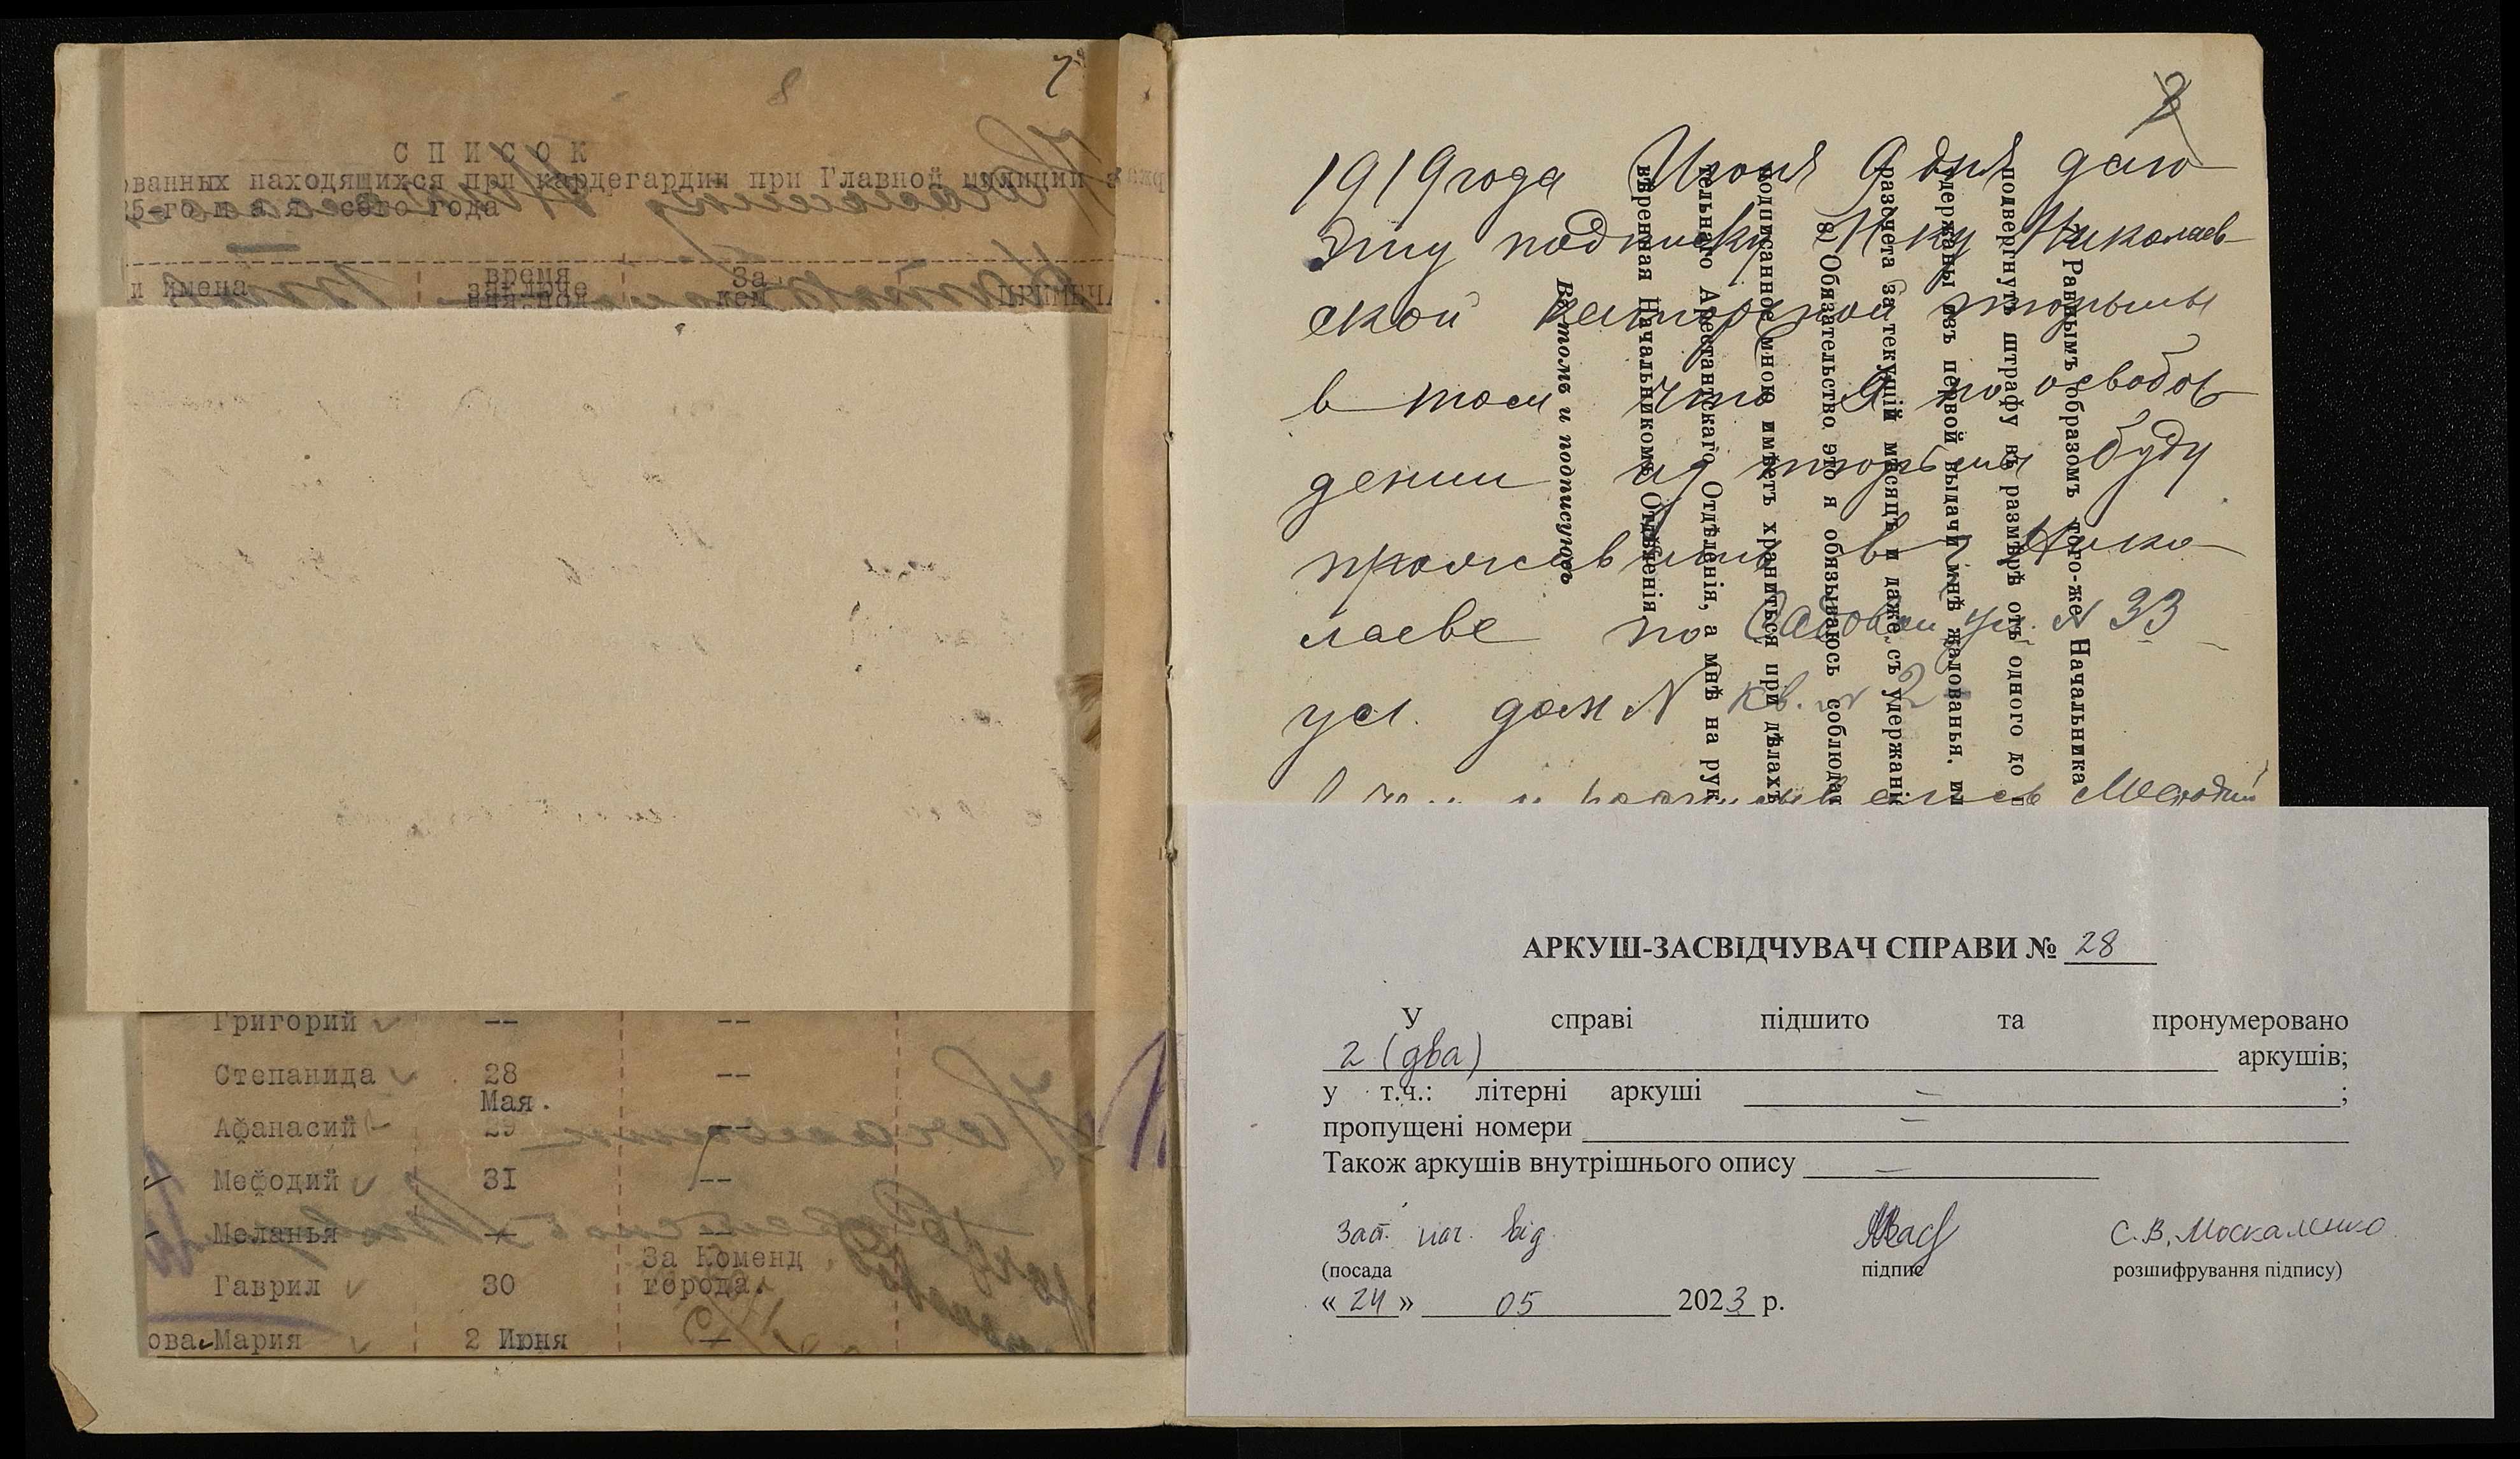 7
8
С П И С О К
ованных находящихся при кардегардии при Главной милиции
25-го м а я сего года
и имена
время
За
кем
Григорий -- --
Степанида 28 --
Мая.
Афанасий 29 --
Мефодий 31 --
Меланья --
За Коменд
Гаврил 30 города.
ова Мария 2 Июня --
2
1919 года Июня 9 дня даю
эту подписку Н-ку Николаев-
ской каторжной тюрьмы
в том что я по освобож-
дении из тюрьмы буду
проживать в г. Нико-
лаеве по Садовой ул. № 33
ул. дом № кв. № 2
Мефодий
Равнымъ образомъ того-же Начальника
подвергнуть штрафу въ размѣрѣ отъ одного до
держаны изъ первой выдачи мнѣ жалованья.
разсчета за текущій мѣсяцъ и даже съ удержані
8) Обязательство это я обязываюсь соблюдат
подписанное мною имѣетъ храниться при дѣлахъ
тельнаго Арестантскаго Отдѣленія, а мнѣ на рук
вѣренная Начальникомъ Отдѣленія
Въ томъ и подписуюсь
АРКУШ-ЗАСВІДЧУВАЧ СПРАВИ № 28
У справі підшито та пронумеровано
2 (два) аркушів;
у т.ч.: літерні аркуші – ;
пропущені номери –
Також аркушів внутрішнього опису –
Заст. нач. від. С.В. Москаленко
(посада підпис розшифрування підпису)
« 24 » 05 2023 р.